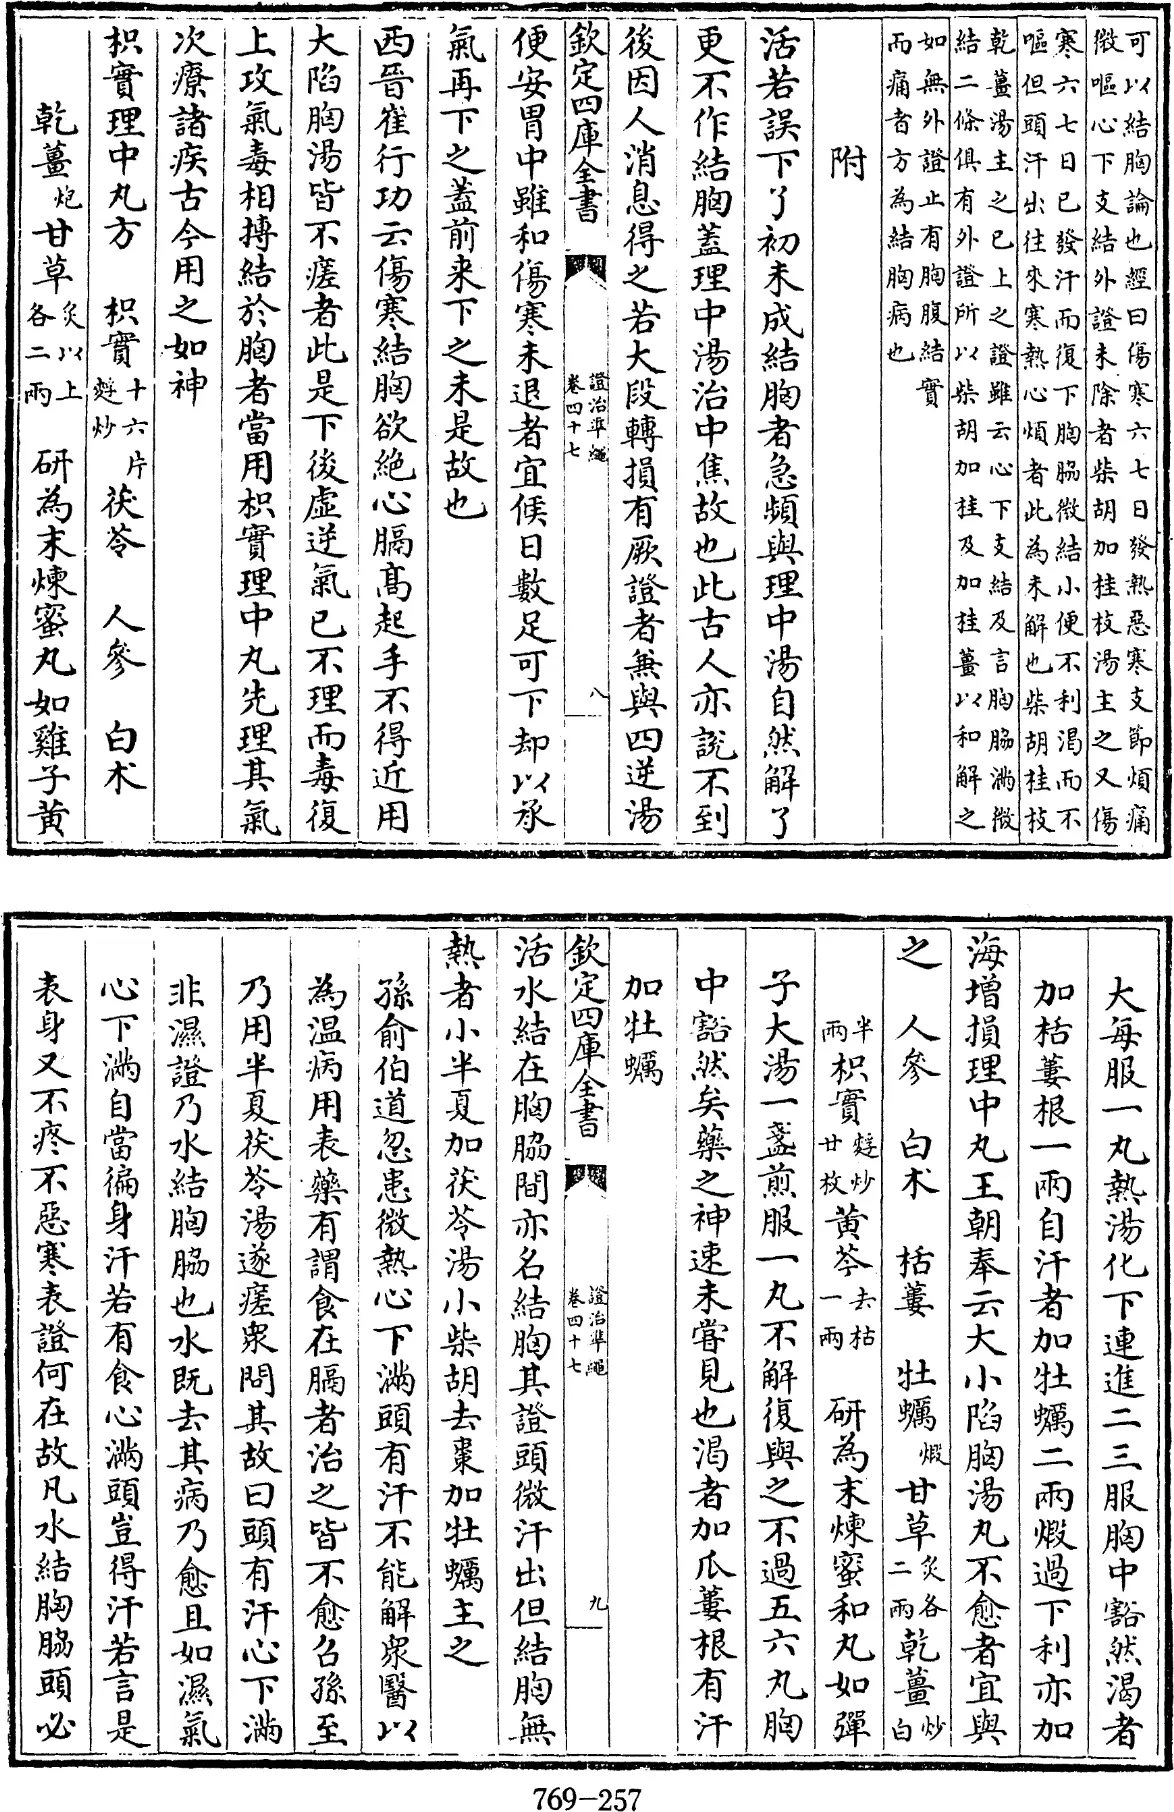 可以結胸論也經曰傷寒六七日發熱惡寒支節煩痛
微嘔心下支結外證未除者柴胡加桂枝湯主之又傷
寒六七日已發汗而復下胸脇微結小便不利渴而不
嘔但頭汗出往來寒熱心煩者此為未解也柴胡桂枝
乾薑湯主之已上之證雖云心下支結及言胸脇滿微
結二條俱有外證所以柴胡加桂及加桂薑以和解之
如無外證止有胸腹結實
而痛者方為結胸病也
附
活若誤下了初未成結胸者急頻與理中湯自然解了
更不作結胸蓋理中湯治中焦故也此古人亦說不到
後因人消息得之若大段轉損有厥證者無與四逆湯
欽定四庫全書
證治準繩
卷四十七
八
便安胃中雖和傷寒未退者宜候日數足可下却以承
氣再下之蓋前來下之未是故也
西晉崔行功云傷寒結胸欲絶心膈高起手不得近用
大陷胸湯皆不瘥者此是下後虛逆氣已不理而毒復
上攻氣毒相摶結於胸者當用枳實理中丸先理其氣
次療諸疾古今用之如神
枳實理中丸方 枳實十六片麩炒茯苓 人參 白术
乾薑炮甘草炙以上各二兩 研為末煉蜜丸如雞子黄
大每服一丸熱湯化下連進二三服胸中豁然渴者
加栝蔞根一兩自汗者加牡蠣二兩煅過下利亦加
海增損理中丸王朝奉云大小陷胸湯丸不愈者宜與
之 人參 白术 栝蔞 牡蠣煅甘草炙各二兩乾薑炒白
半兩枳實麩炒廿枚黄芩去枯一兩 研為末煉蜜和丸如彈
子大湯一盞煎服一丸不解復與之不過五六丸胸
中豁然矣藥之神速未嘗見也渴者加瓜蔞根有汗
加牡蠣
欽定四庫全書
證治準繩
卷四十七
九
活水結在胸脇間亦名結胸其證頭微汗出但結胸無
熱者小半夏加茯苓湯小柴胡去棗加牡蠣主之
孫俞伯道忽患微熱心下滿頭有汗不能解衆醫以
為温病用表藥有謂食在膈者治之皆不愈召孫至
乃用半夏茯苓湯遂瘥衆問其故曰頭有汗心下滿
非濕證乃水結胸脇也水既去其病乃愈且如濕氣
心下滿自當徧身汗若有食心滿頭豈得汗若言是
表身又不疼不惡寒表證何在故凡水結胸脇頭必
769-257